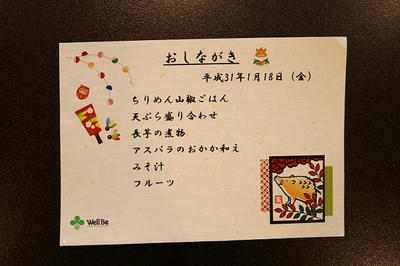 おしながき
平成31年1月18日（金）
ちりめん山椒ごはん
天ぷら盛り合わせ
長芋の煮物
アスパラのおかか和え
みそ汁
フルーツ
Well Be